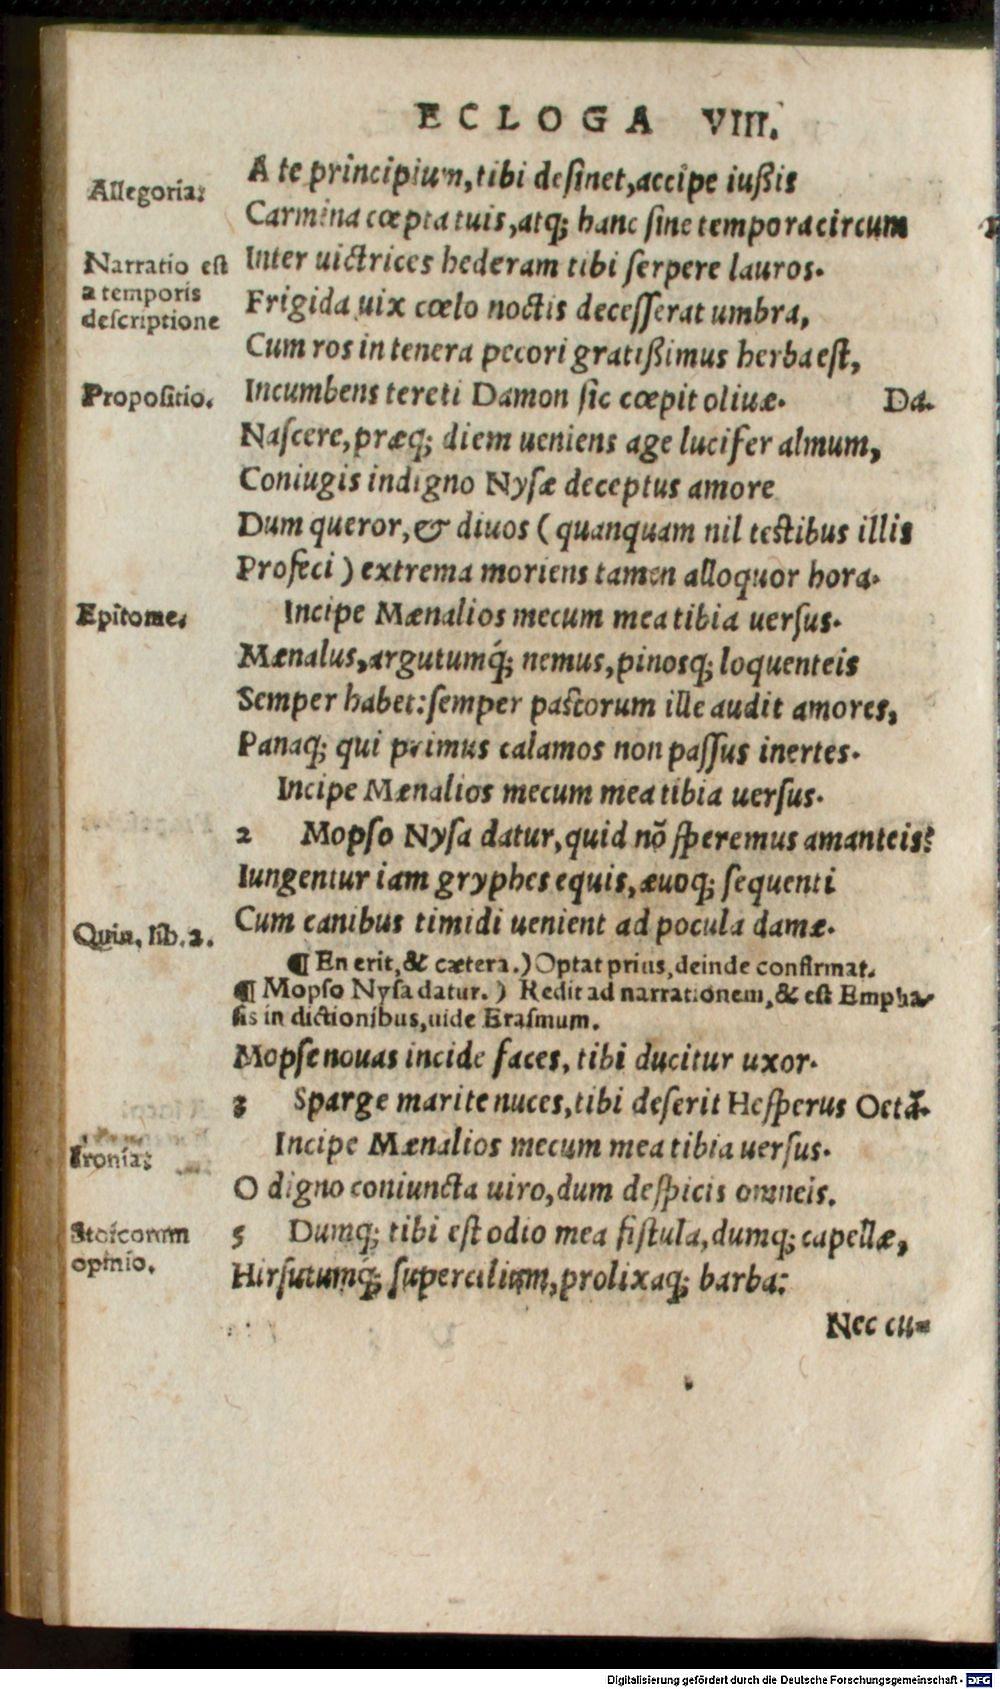 ECLOGA VIII.
Allegoria:
A te principium, tibi desinet, accipe iußis
Carmina cœpta tuis, atq; hanc sine tempora circum
Narratio est
a temporis
descriptione
Inter uictrices hederam tibi serpere lauros.
Frigida uix cœlo noctis decesserat umbra,
Cum ros in tenera pecori gratißimus herba est,
Propositio.
Incumbens tereti Damon sic cœpit oliuæ. Da.
Nascere, præq; diem ueniens age lucifer almum,
Coniugis indigno Nysæ deceptus amore
Dum queror, & diuos (quanquam nil testibus illis
Profeci) extrema moriens tamen alloquor hora.
Epitome.
Incipe Mænalios mecum mea tibia uersus.
Mænalus, argutumq́; nemus, pinosq; loquenteis
Semper habet: semper pastorum ille audit amores,
Panaq; qui primus calamos non passus inertes.
Incipe Mænalios mecum mea tibia uersus.
2 Mopso Nysa datur, quid nõ speremus amanteis?
Iungentur iam gryphes equis, æuoq; sequenti
Cum canibus timidi uenient ad pocula damæ.
Quin. lib. 2.
¶ En erit, & cætera.) Optat prius, deinde confirmat.
¶ Mopso Nysa datur.) Redit ad narrationem, & est Empha-
sis in dictionibus, uide Erasmum.
Mopse nouas incide faces, tibi ducitur uxor.
3 Sparge marite nuces, tibi deserit Hesperus Octã.
Incipe Mænalios mecum mea tibia uersus.
Ironia:
O digno coniuncta uiro, dum despicis omneis.
Stoicorum
opinio.
5 Dumq; tibi est odio mea fistula, dumq; capellæ,
Hirsutumq́; supercilium, prolixaq; barba:
Nec cu-
Digitalisierung gefördert durch die Deutsche Forschungsgemeinschaft - DFG